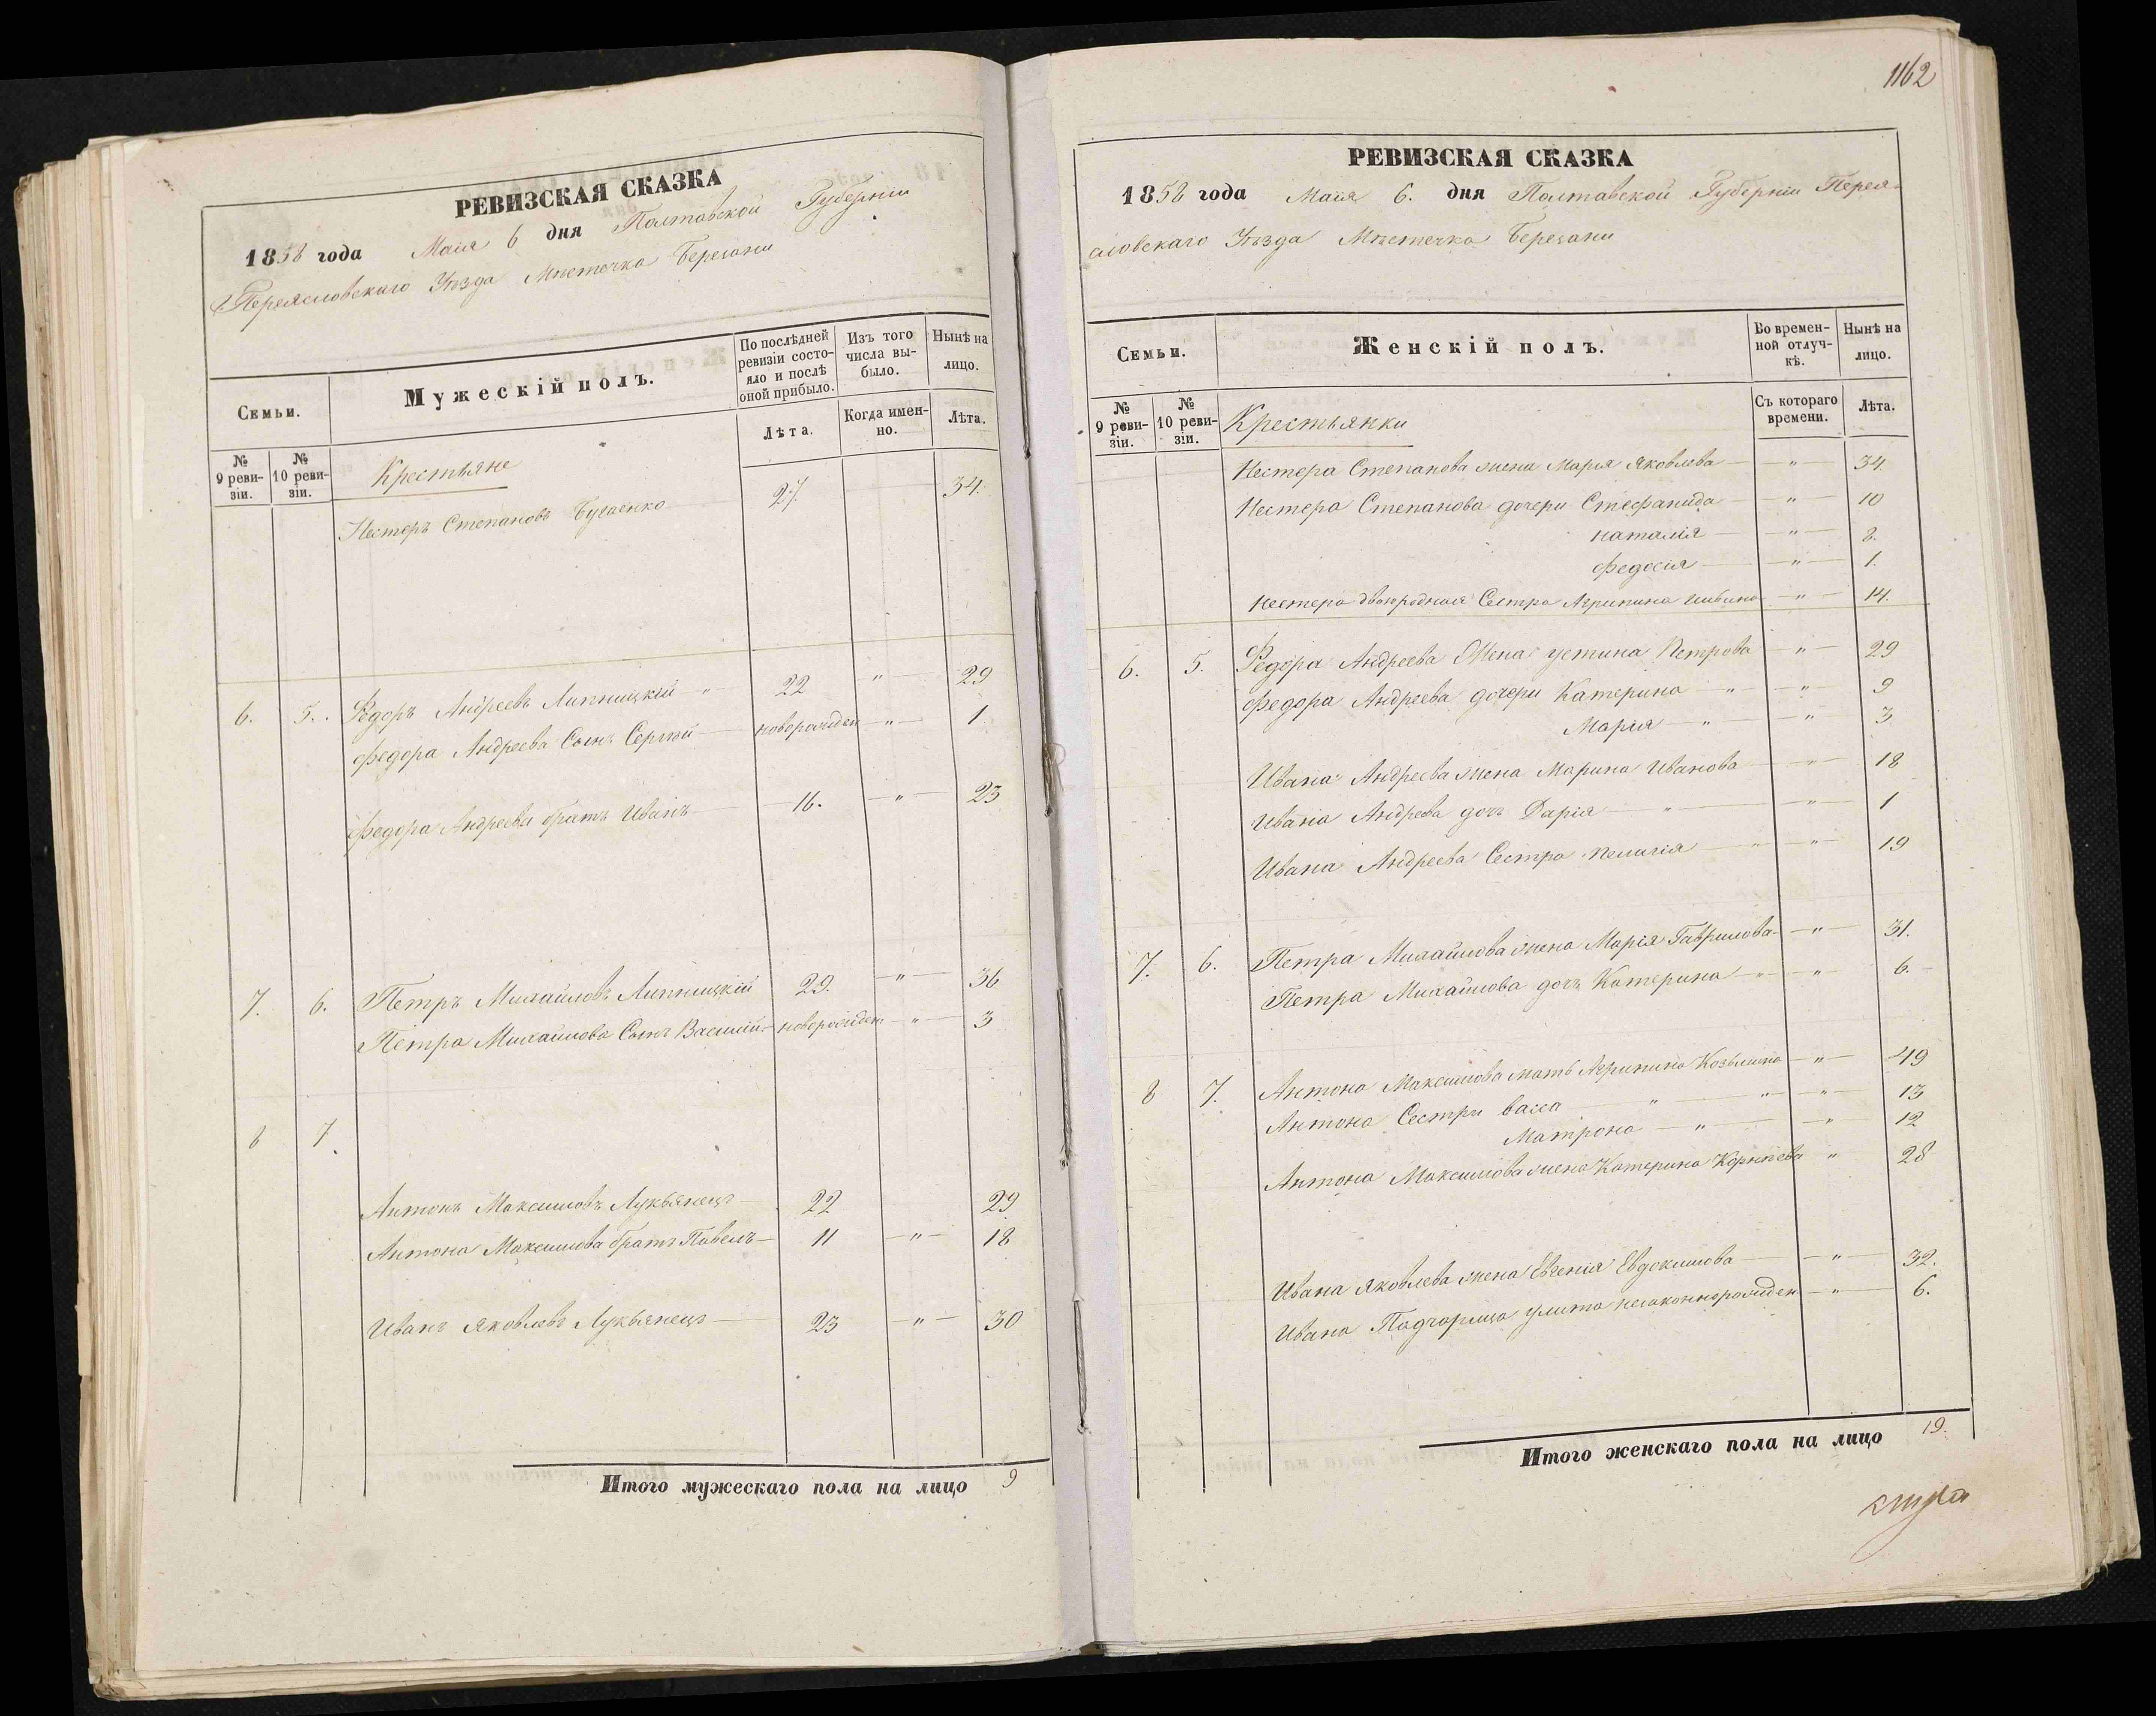 РЕВИЗСКАЯ СКАЗКА
1858 года Маія 6 дня Полтавской Губерніи
Переясловскаго Уѣзда Мѣстечка Березани
Семьи.
Мужескій полъ.
По послѣдней ревизіи состояло и послѣ оной прибыло.
Изъ того числа выбыло.
Нынѣ на лицо.
№ 9 ревизіи.
№ 10 ревизіи.
Лѣта.
Когда именно.
Лѣта.
Крестьяне
Нестеръ Степановъ Бугаенко 27. 34.
6. 5. Федоръ Андреевъ Липницкій " 22 " 29
Федора Андреева Сынъ Сергѣй новорожден " 1
Федора Андреева братъ Иванъ 16. " 23
7. 6. Петръ Михайловъ Липницкій 29. " 36
Петра Михайлова Сынъ Василій новорожден " 3
8 7.
Антонъ Максимовъ Лукьянецъ 22 29
Антона Максимова братъ Павелъ 11 " 18
Иванъ Яковлевъ Лукьянецъ 23 " 30
Итого мужескаго пола на лицо 9
1162
РЕВИЗСКАЯ СКАЗКА
1858 года Маія 6. дня Полтавской Губерніи Перея-
словскаго Уѣзда Мѣстечка Березани
Семьи.
Женскій полъ.
Во временной отлучкѣ.
Нынѣ на лицо.
№ 9 ревизіи.
№ 10 ревизіи.
Съ котораго времени.
Лѣта.
Крестьянки
Нестера Степанова жена Марія Яковлева " 34
Нестера Степанова дочери Стефанида " 10
Наталія " 8.
Федосія " 1.
Нестера двоюродная Сестра Агрипина " 14.
6. 5. Федора Андреева Жена Устина Петрова " 29
Федора Андреева дочери Катерина " " 9
Марія " " 3
Ивана Андреева жена Марина Иванова " 18
Ивана Андреева дочь Дарія " " 1
Ивана Андреева Сестра Пелагія " " 19
7. 6. Петра Михайлова жена Марія Гаврилова " 31.
Петра Михайлова дочь Катерина " " 6.
8 7. Антона Максимова мать Агрипина Козьмина " 49
Антона Сестри Васса " " " 13
Матрона " " 12
Антона Максимова жена Катерина Корнѣева " 28
Ивана Яковлева жена Евгенія Евдокимова " 32.
Ивана Падчорица Улита незаконнорожден " 6.
Итого женскаго пола на лицо 19.